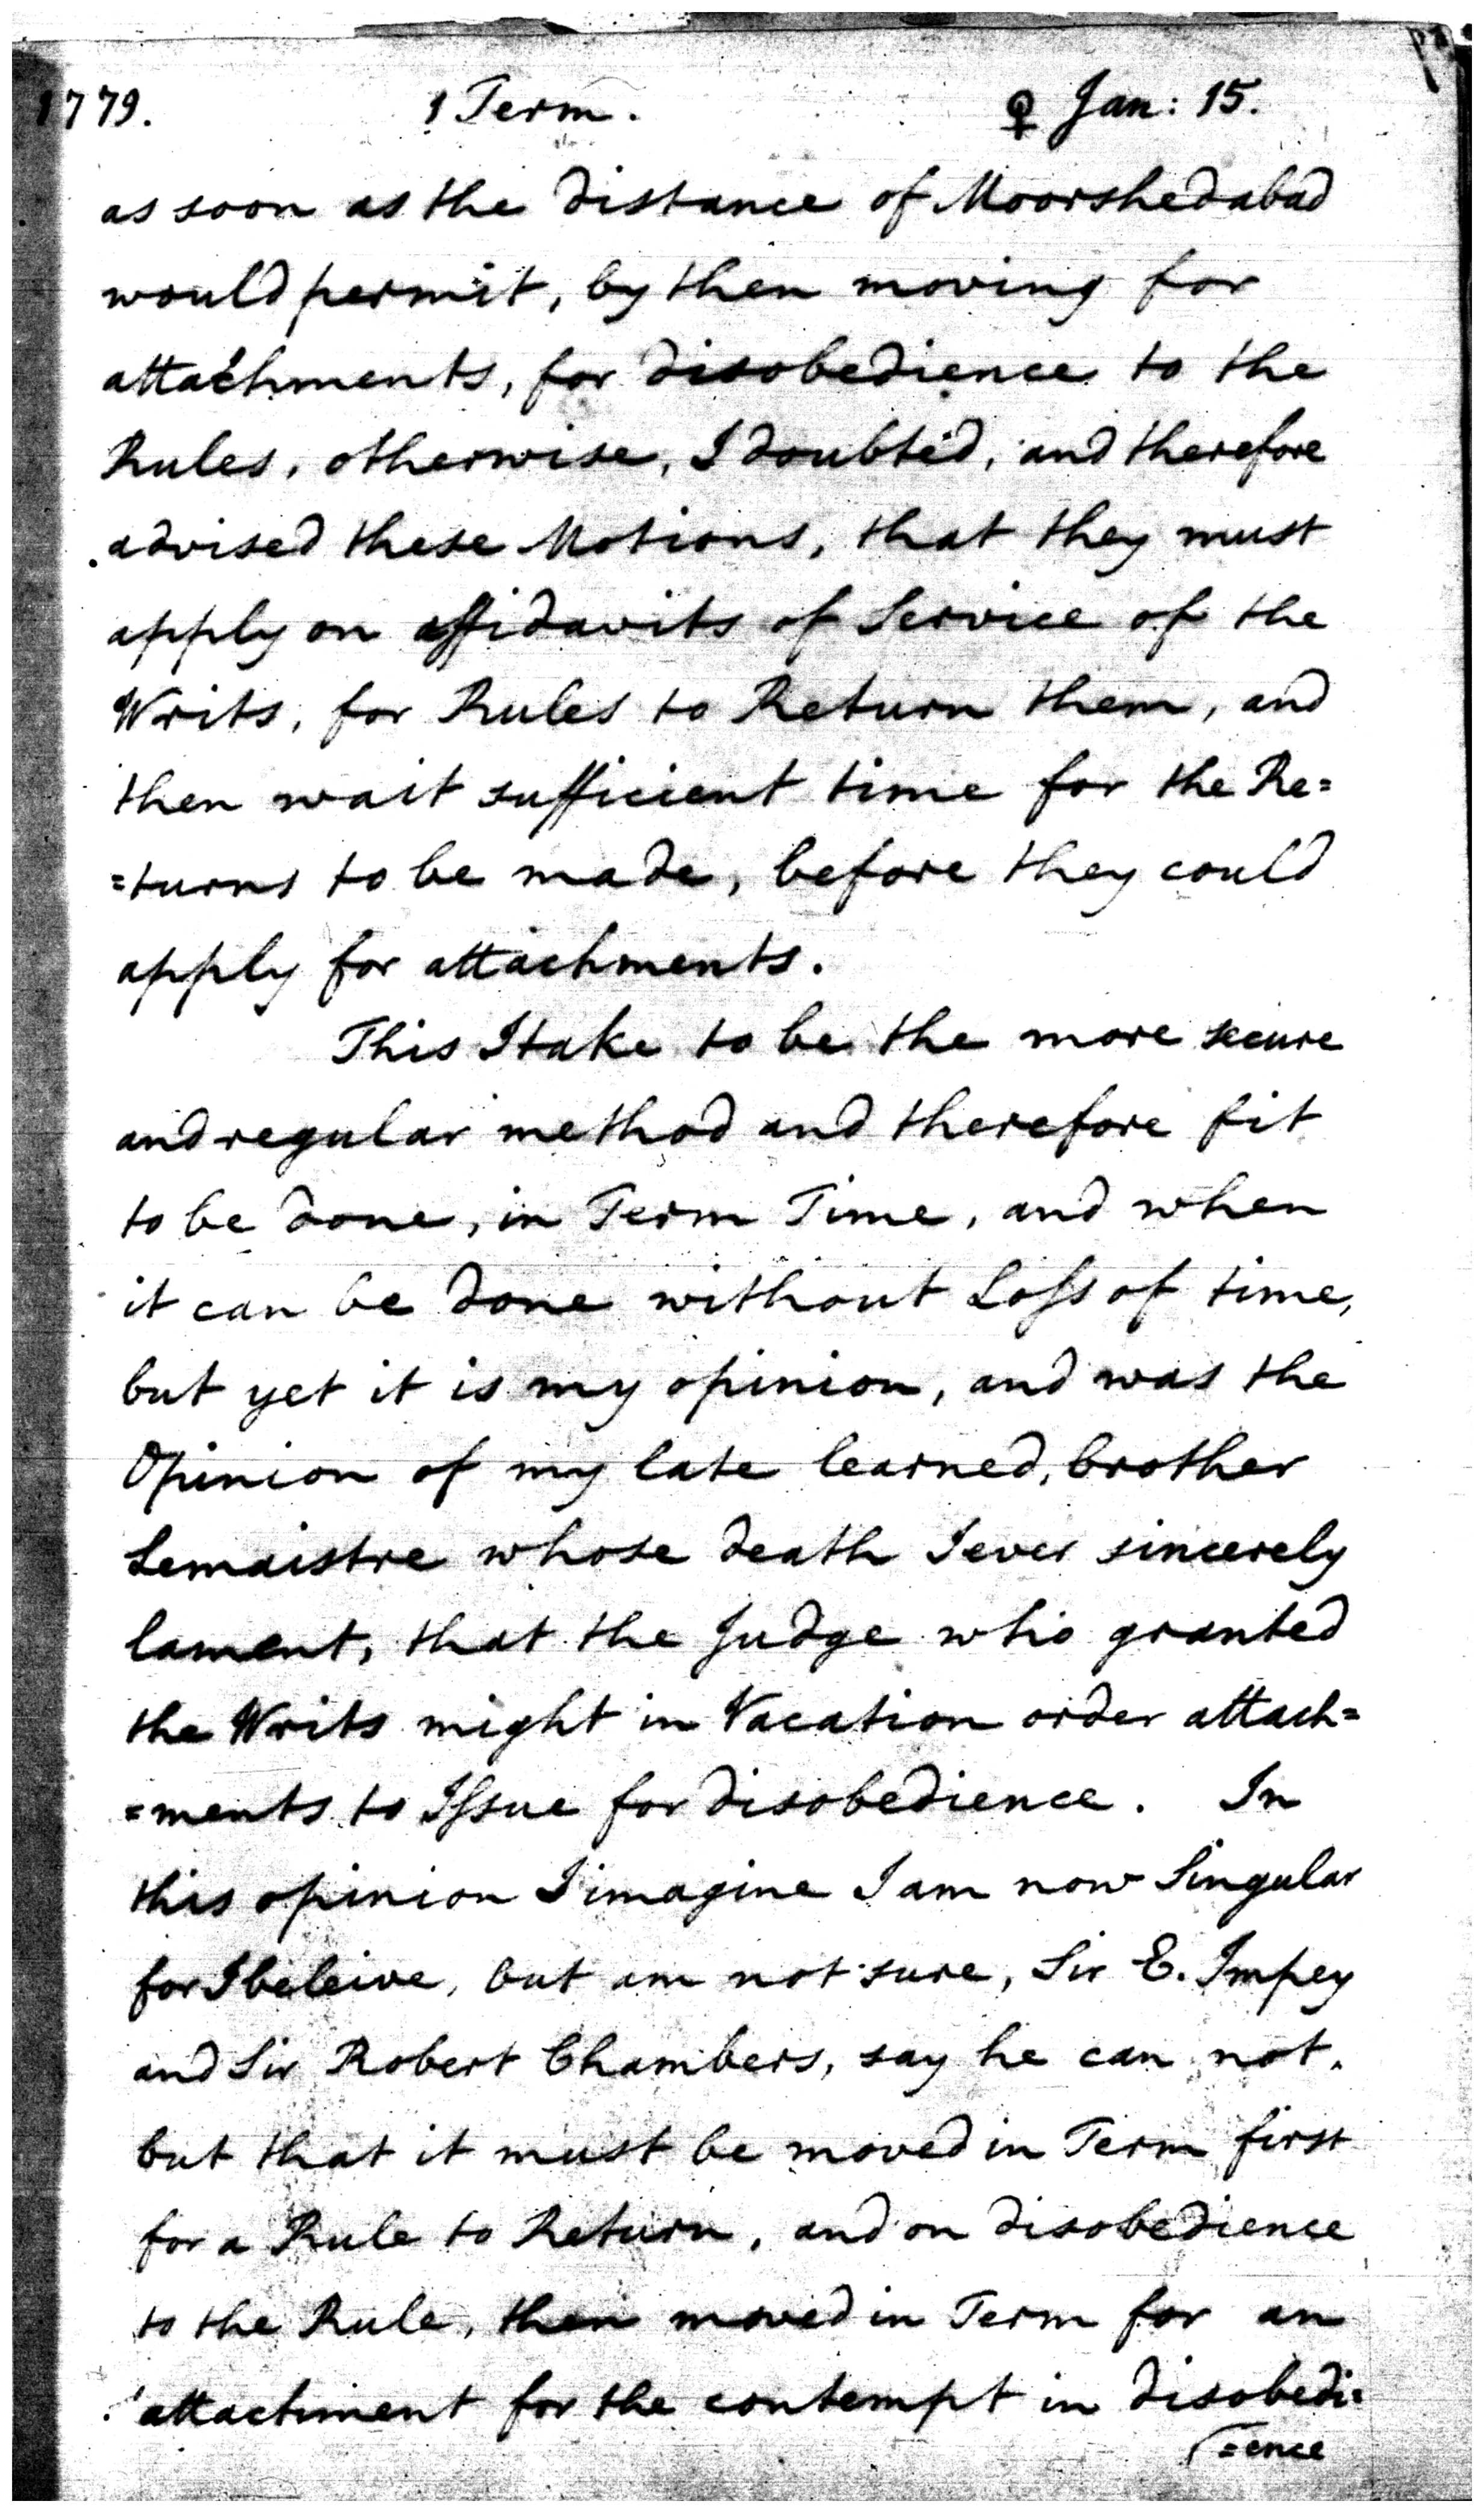 1779. 1 Term. ♀ Jan: 15.
as soon as the distance of Moorshedabad
would permit, by then moving for
attachments, for disobedience to the
Rules, otherwise, I doubted, and therefore
advised these Motions, that they must
apply on affidavits of Service of the
Writs, for Rules to Return them, and
then wait sufficient time for the Re=
=turns to be made, before they could
apply for attachments.
This I take to be the more secure
and regular method and therefore fit
to be done, in Term Time, and when
it can be done without Loſs of time,
but yet it is my opinion, and was the
Opinion of my late learned, brother
Lemaistre whose death I ever sincerely
lament, that the Judge who granted
the Writs might in Vacation order attach=
=ments to Iſsue for disobedience. In
this opinion I imagine I am now Singular
for I beleive, but am not sure, Sir E. Impey
and Sir Robert Chambers, say he can not.
but that it must be moved in Term first
for a Rule to Return, and on disobedience
to the Rule, then moved in Term for an
attachment for the contempt in disobedi=
=ence